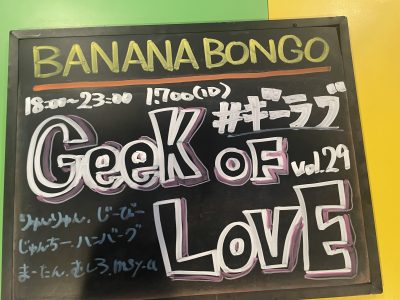 BANANA BONGO
18:00~23:00 1,700(1D)
#ギーラブ
GeeK OF vol.29
LOVE
りゃんりゃん、じーびー
じゅんちー、ハンバーグ
まーたん、むしろ、msy-u